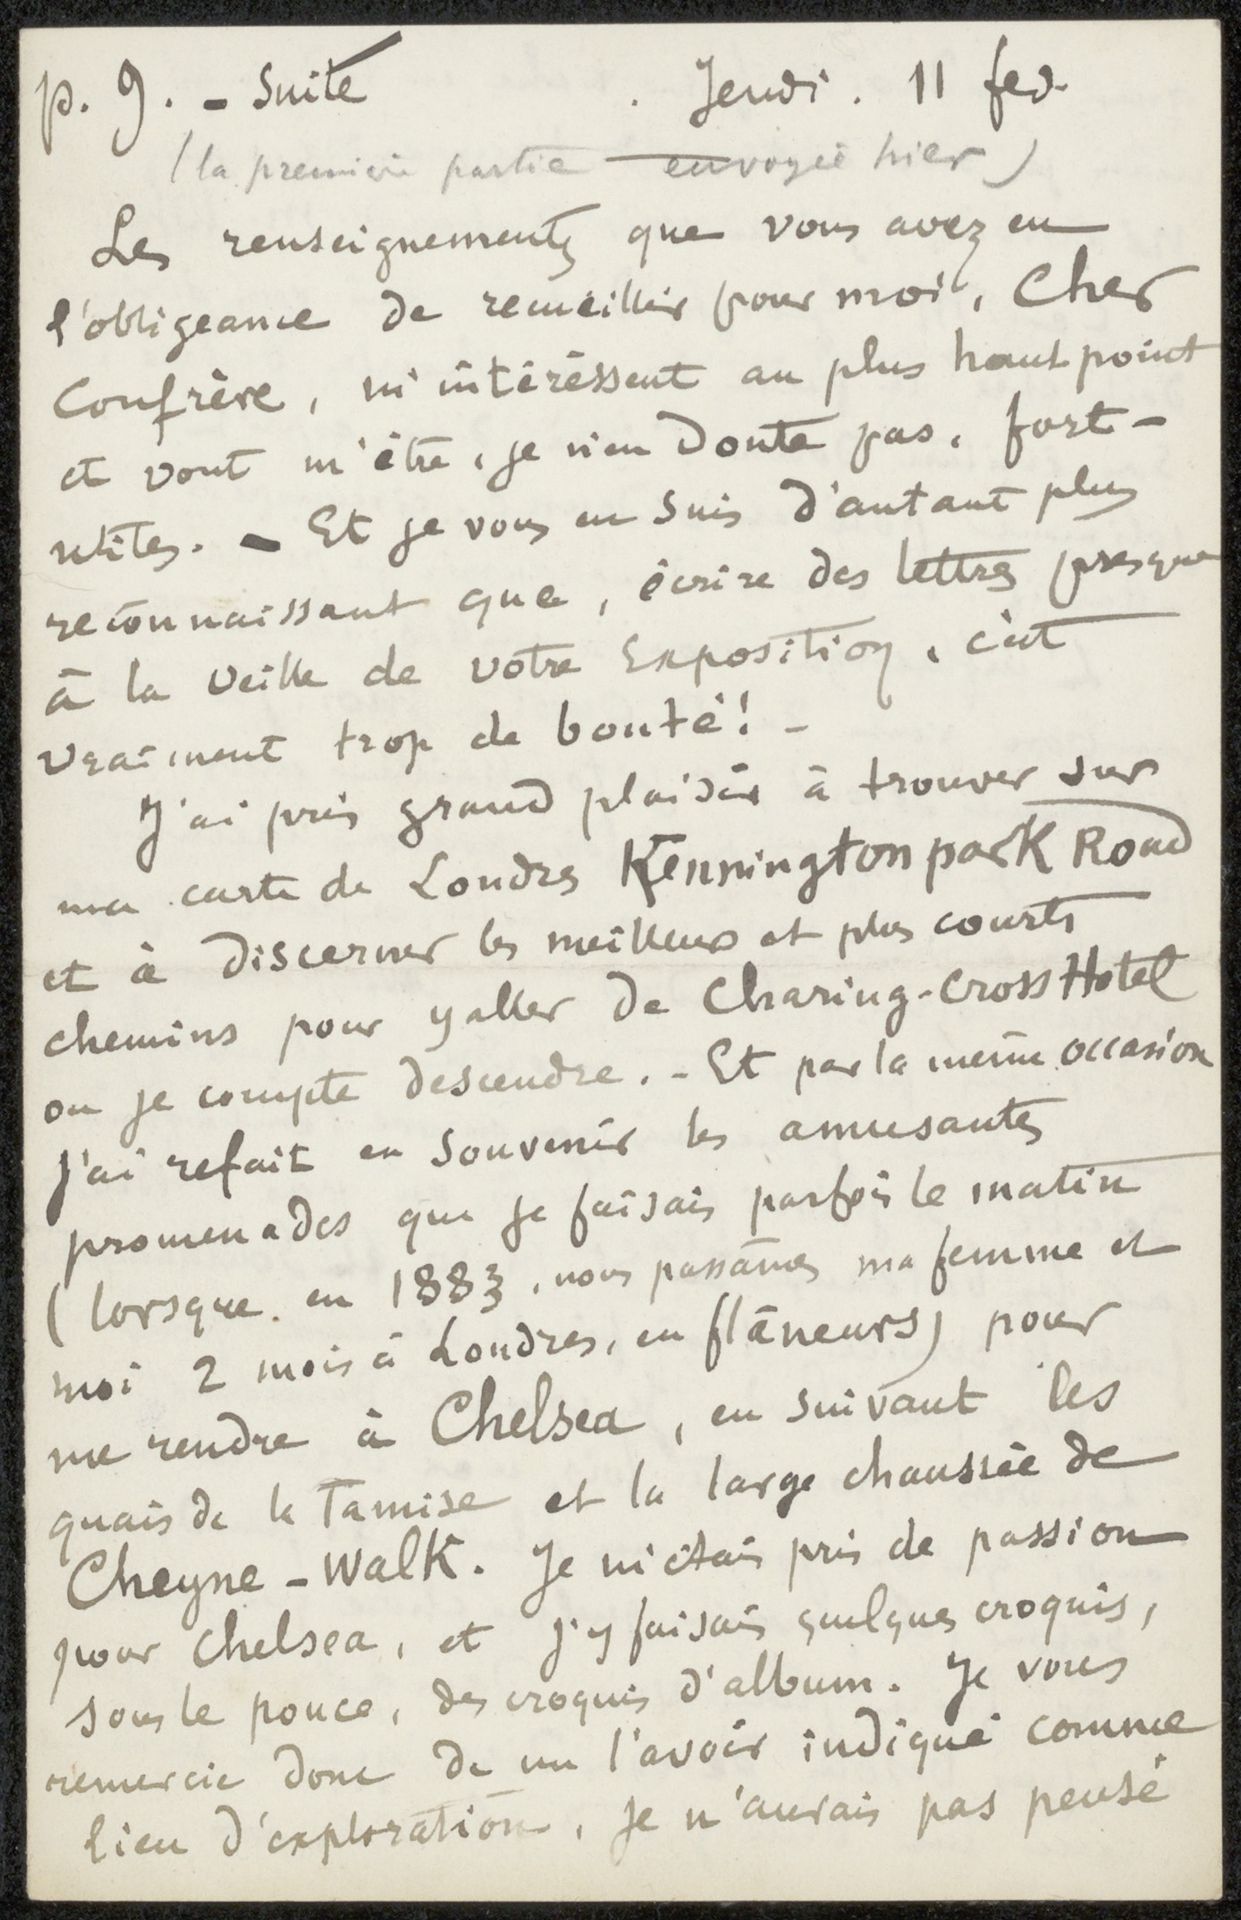 p. 9. - Suite . Jeudi. 11 fev.
(la première partie envoyée hier)
Les renseignements que vous avez eu
l'obligeance de recueillir pour moi, Cher
Confrère, m'intéréssent au plus haut point
et vont m'être, je n'en doute pas, fort-
utiles. - Et je vous en suis d'autant plus
reconnaissant que, écrire des lettres presque
à la veille de votre Exposition, c'est
vraiment trop de bonté! -
J'ai pris grand plaisir à trouver sur
ma carte de Londres Kennington park Road
et à discerner les meilleurs et plus courts
chemins pour y aller de Charing-Cross Hotel
ou je compte descendre. - Et par la même occasion
j'ai refait en souvenir les amusantes
promenades que je faisais parfois le matin
(lorsque en 1883, nous passâmes ma femme et
moi 2 mois à Londres, en flâneurs) pour
me rendre à Chelsea, en suivant les
quais de la Tamise et la large chaussée de
Cheyne-Walk. Je m'étais pris de passion
pour Chelsea, et j'y faisais quelques croquis,
sous le pouce, des croquis d'album. Je vous
remercie donc de me l'avoir indiqué comme
lieu d'exploration, je n'aurais pas pensé